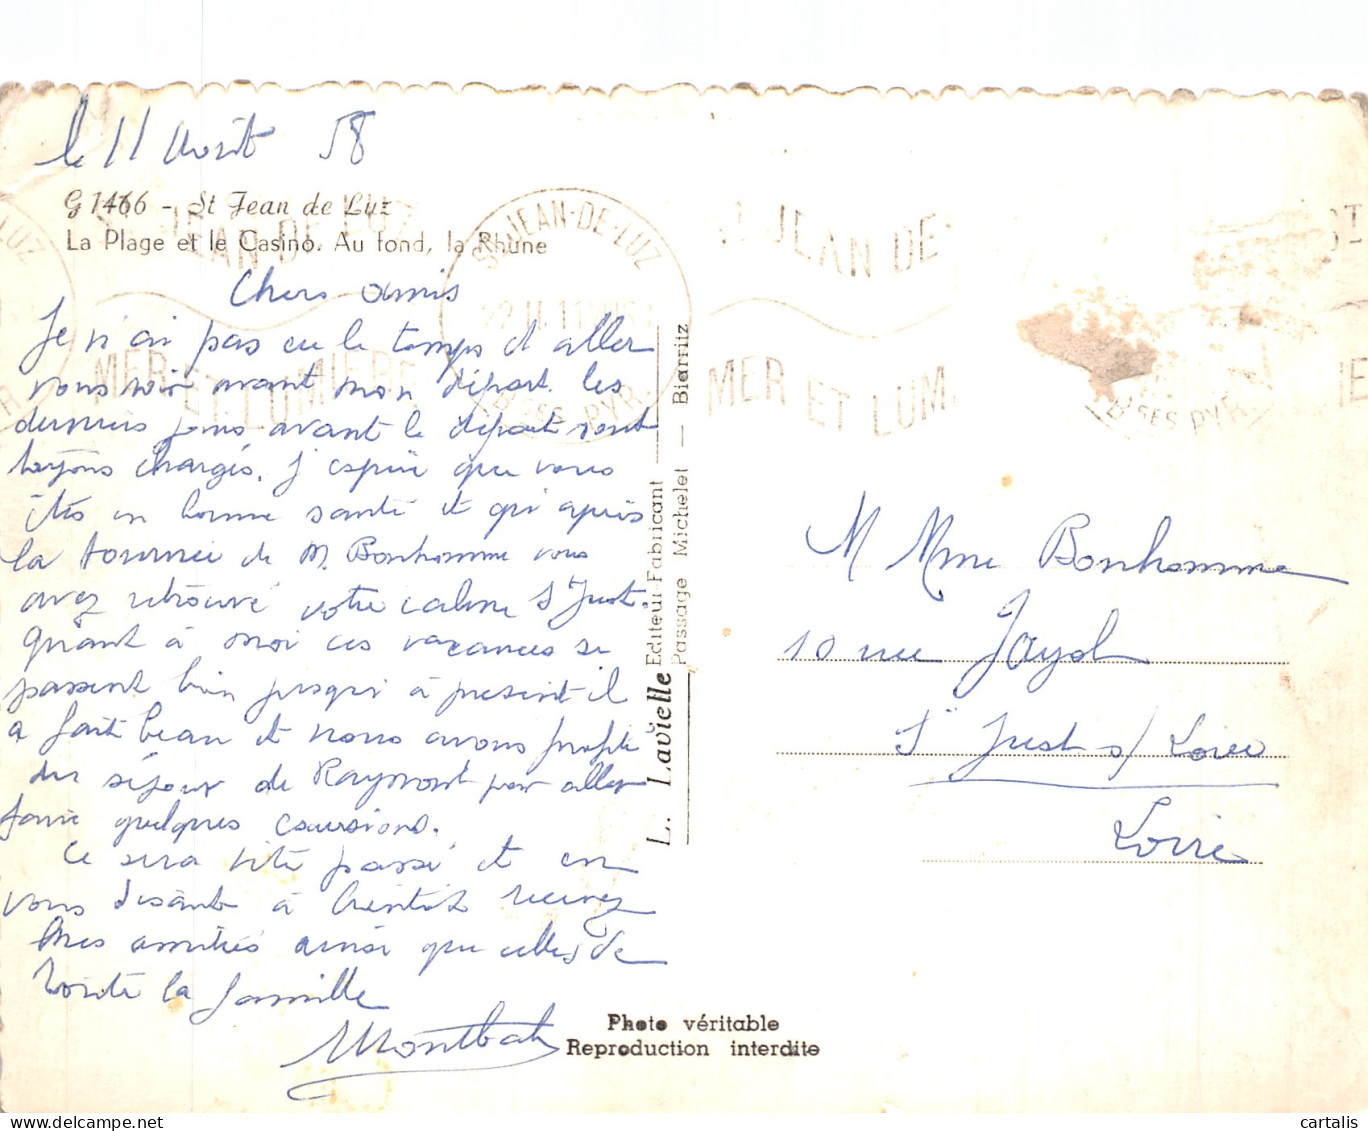 le 11 Août 58
G 1466 - St Jean de Luz
La Plage et le Casino. Au fond, la Rhune
ST JEAN-DE-LUZ
BSES PYR.
ST JEAN DE LUZ
MER ET LUMIERE
Chers amis
Je n'ai pas eu le temps d'aller
vous voir avant mon départ. les
derniers jours avant le départ sont
toujours chargés. J'espère que vous
êtes en bonne santé et qu'après
la tournée de M. Bonhomme vous
avez retrouvé votre calme St Just.
Quant à moi ces vacances se
passent bien jusqu'à présent il
a fait beau et nous avons profité
du séjour de Raymond pour aller
faire quelques excursions.
Ce sera vite passé et en
vous disant à bientôt recevez
mes amitiés ainsi que celles de
toute la famille
L. Lavielle Editeur-Fabricant
Passage Michelet — Biarritz
M Mme Bonhomme
10 rue
St Just s/ Loire
Loire
Photo véritable
Reproduction interdite
cartalis